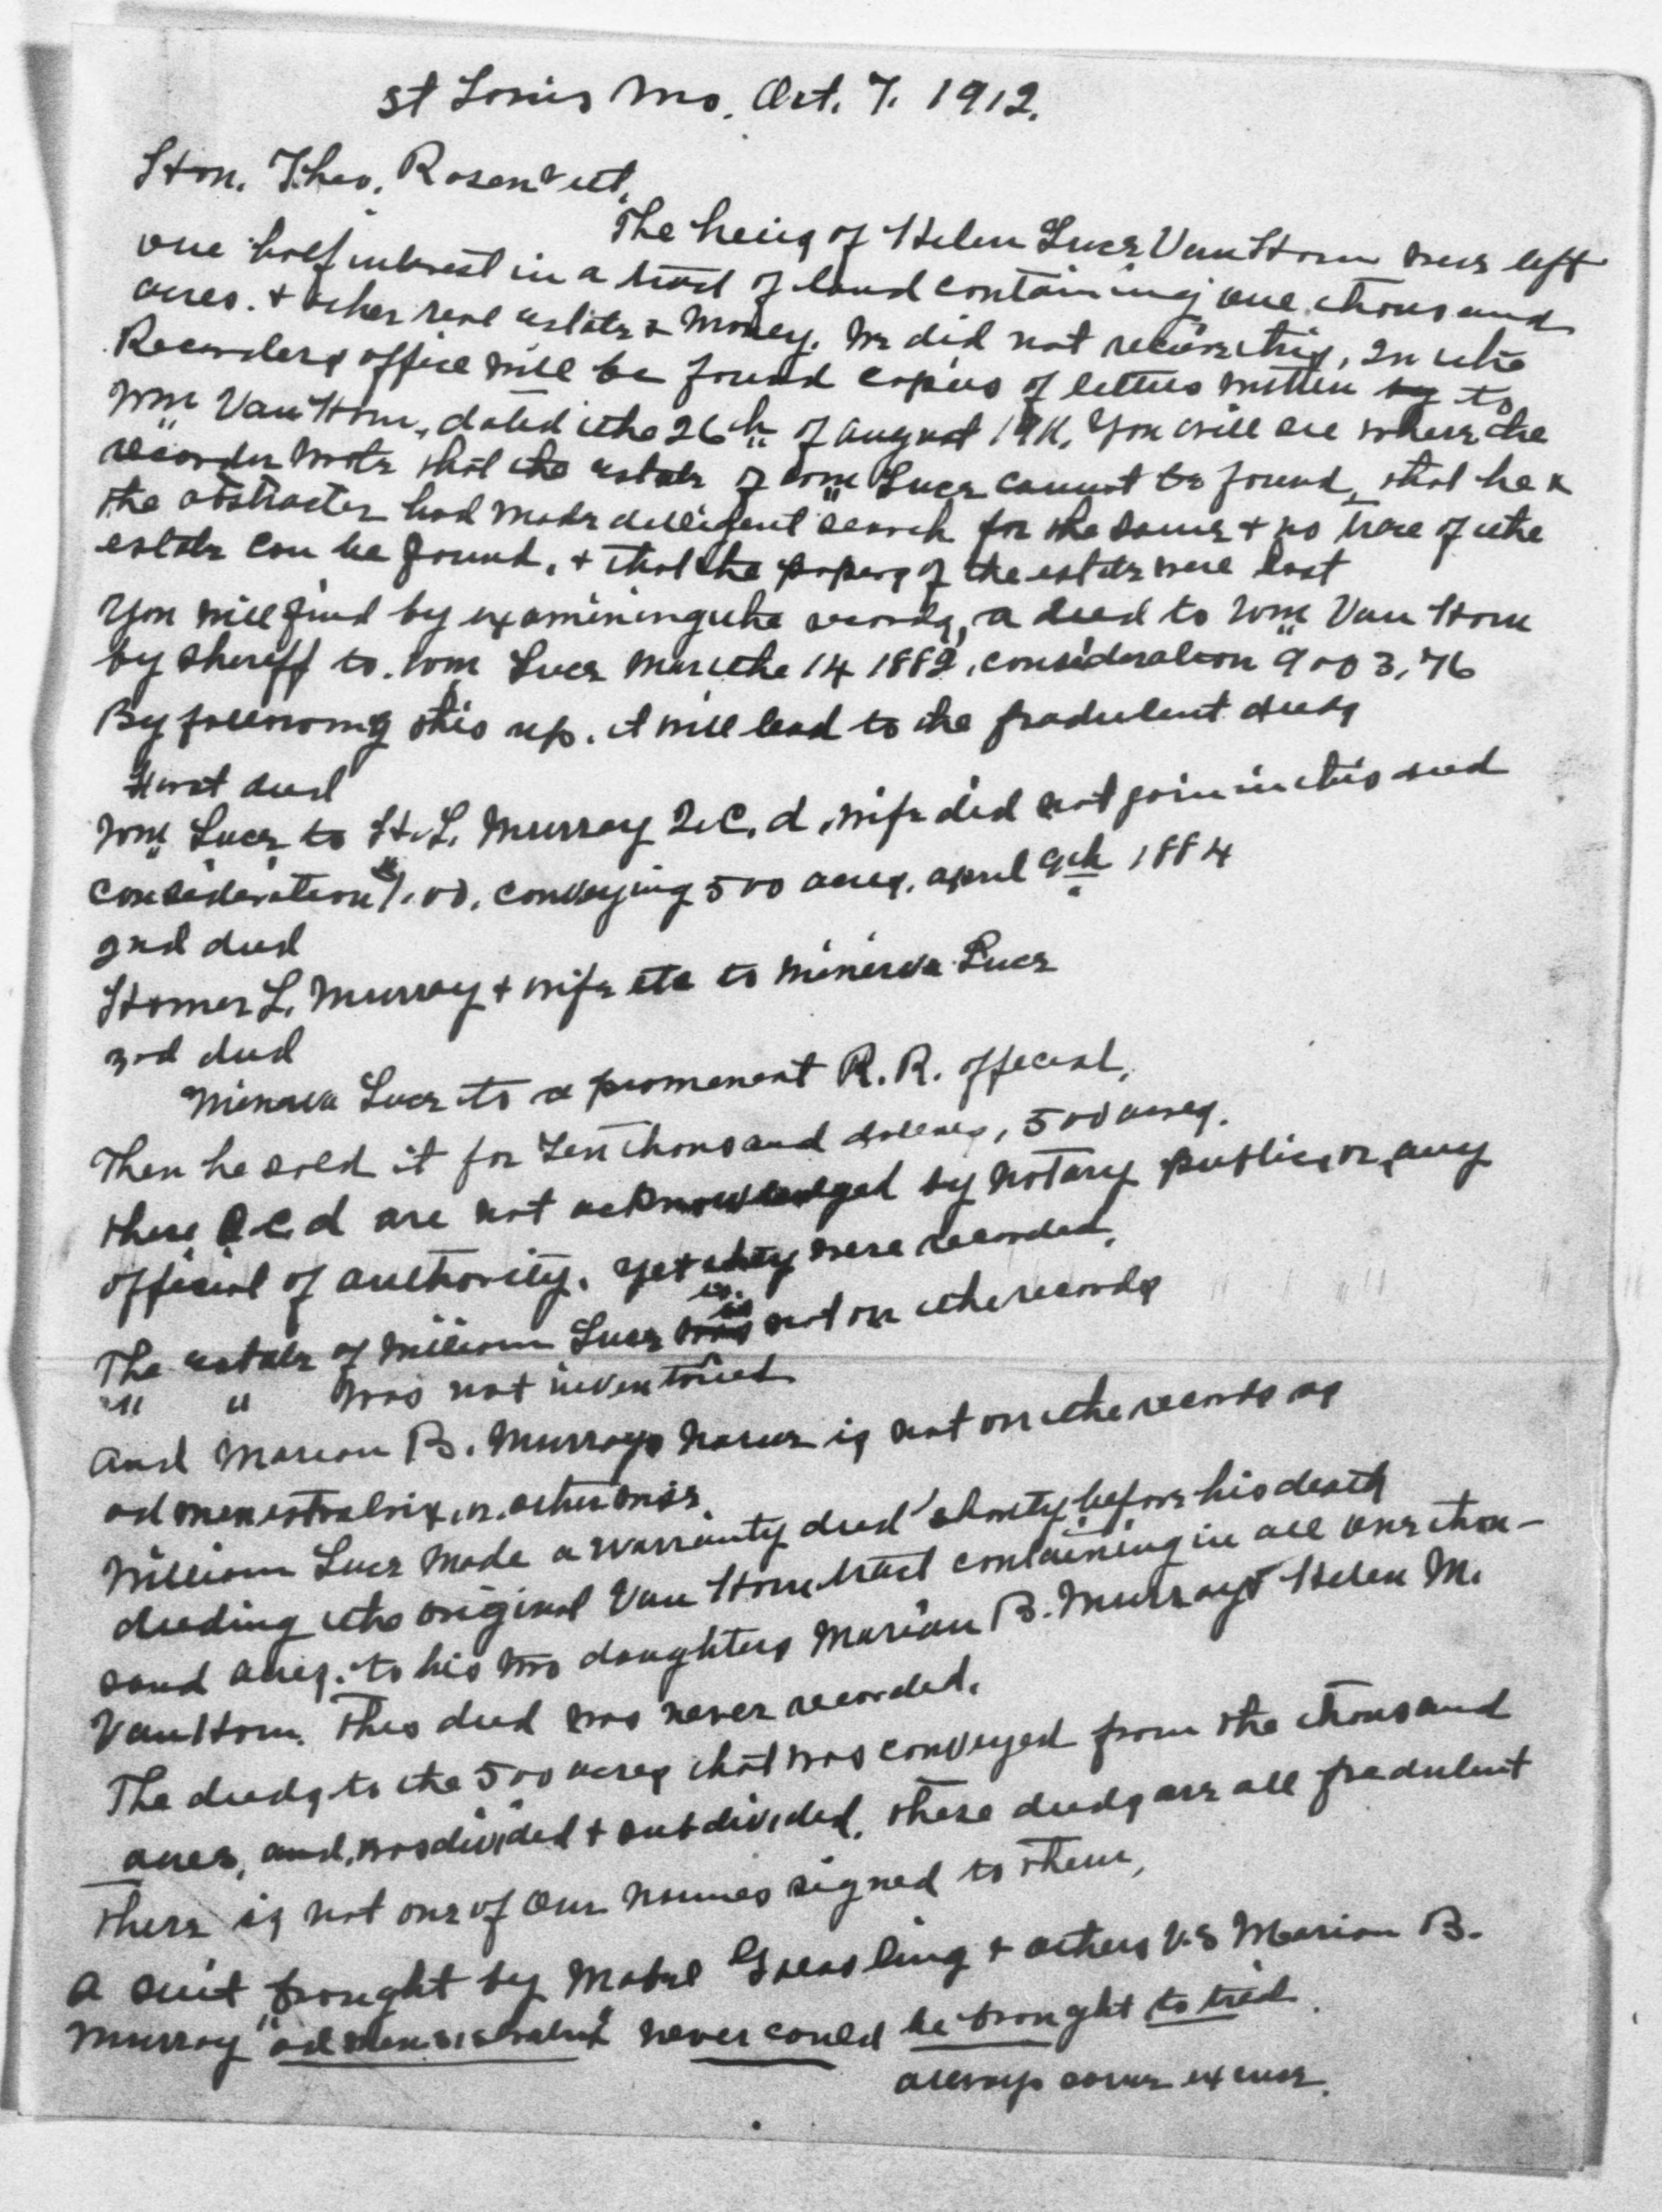 St Louis Mo. Oct. 7. 1912.
Hon. Theo. Rosenvelt,
The heirs of Helen Luce Van Horn were left
one half interest in a tract of land containing one thousand
acres. & other real estate & money. We did not receive this, In the
Recorders office will be found copies of letters written by to
Wm Van Horn, dated the 26th of august 1911, You will see where the
recorder wrote that the estate of Wm Luce cannot be found, that he &
the abstracter had made dilligent search for the same & no trace of the
estate can be found, & that the papers of the estate were lost
You will find by examining the records, a deed to Wm Van Horn
by sheriff to. Wm Luce Mar the 14 1882, consideration 9003,76
By following this up. it will lead to the fradulent deeds
First deed
Wm Luce to H. L. Murray Q.C.d, wife did not join in this deed
consideration $1.00, conveying 500 acres, april 9th 1884
2nd deed
Homer L. Murray & wife etc to Minerva Luce
3rd deed
Minerva Luce to a promenent R.R. offecial,
Then he sold it for Ten thousand dollars, 500 acres.
these Q.C.d are not acknowledged by notary public, or any
official of authority. yet they were recorded.
The estate of William Luce was is not on the records
" " was not inventoried
and Marion B. Murrays name is not on the records as
admenestratrix, or, otherwise.
William Luce made a warranty deed shortly before his death
deeding the original Van Horn tract containing in all one thou-
sand acres. to his two daughters Marian B. Murray & Helen M.
Van Horn. This deed was never recorded.
The deeds to the 500 acres that was conveyed from the thousand
acres, and, was divided & subdivided. these deeds are all fradulent
there is not one of our names signed to them,
A suit brought by Mabel & others V.S Marion B.
Murray "admenisstratrix" never could be brought to trial.
always some excuse.